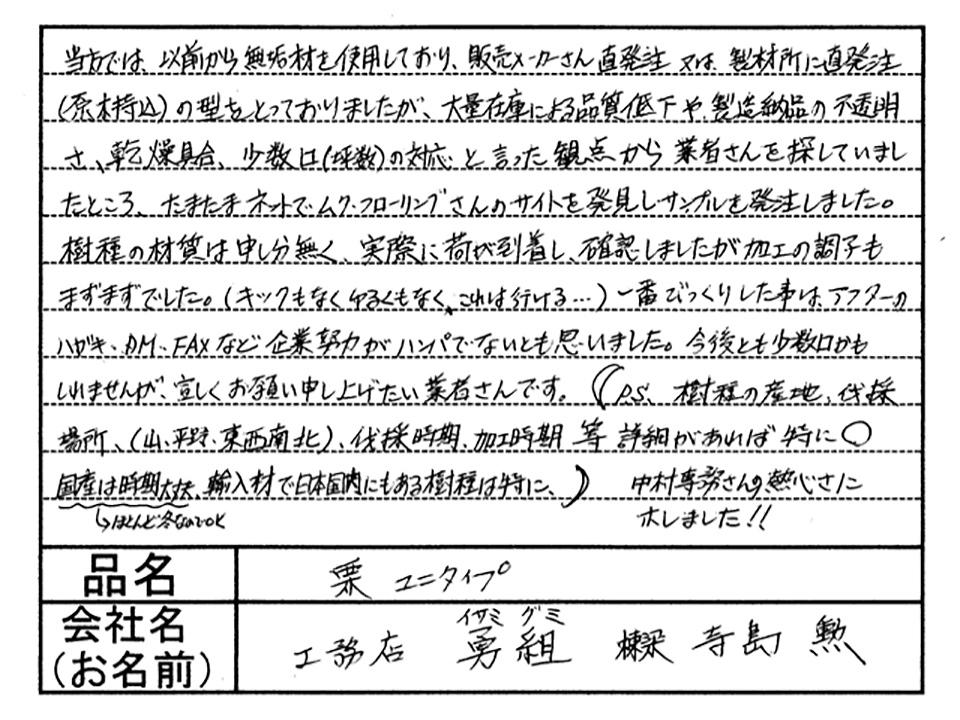 当方では、以前から無垢材を使用しており、販売メーカーさん直発注 又は、製材所に直発注
(原木持込)の型をとっておりましたが、大量在庫による品質低下や、製造納品の不透明
さ、乾燥具合、少数口(坪数)の対応と言った観点から業者さんを探していまし
たところ、たまたまネットでムク・フローリングさんのサイトを発見しサンプルを発注しました。
樹種の材質は申し分無く、実際に荷が到着し、確認しましたが加工の調子も
まずまずでした。(キツくもなくゆるくもなく、これは行ける…)一番びっくりした事は、アフターの
ハガキ、DM、FAXなど企業努力がハンパでないとも思いました。今後とも少数口かも
しれませんが、宜しくお願い申し上げたい業者さんです。(P.S、樹種の産地、伐採
場所、(山、平野、東西南北)、伐採時期、加工時期 等 詳細があれば特に○
国産は時期大丈夫、輸入材で日本国内にもある樹種は特に、) 中村専務さんの熱心さに
↳ほとんど冬なのでOK ホレました!!
品名 栗 ユニタイプ
会社名 イサミ グミ
(お名前) 工務店 勇組 寺島 勲